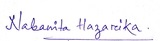 Nabamita Hazarika.